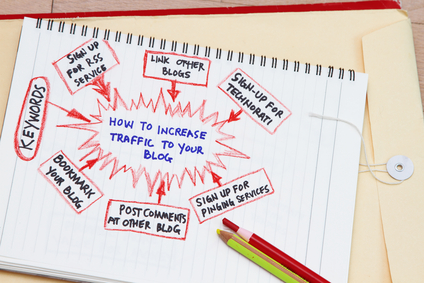 SIGN UP
FOR RSS
SERVICE
LINK OTHER
BLOGS
SIGN-UP FOR
TECHNORATI
KEYWORDS
HOW TO INCREASE
TRAFFIC TO YOUR
BLOG
BOOKMARK
YOUR BLOG
POST COMMENTS
AT OTHER BLOG
SIGN UP FOR
PINGING SERVICES